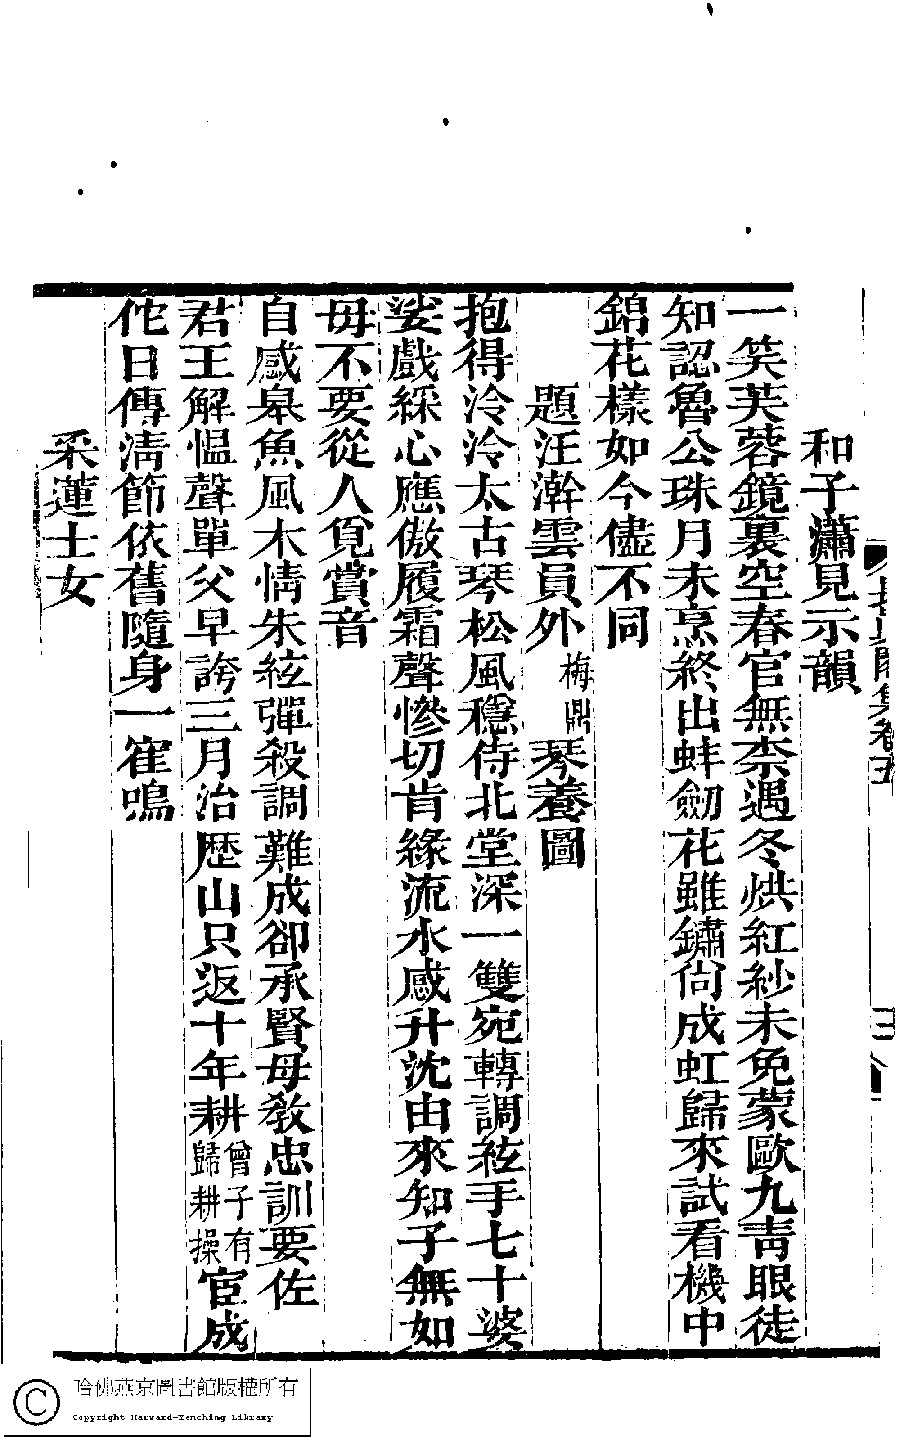 和子瀟見示韻
一笑芙蓉鏡裏空春官無柰遇冬烘紅紗未免蒙歐九靑眼徒
知認魯公珠月未烹終出蚌劒花雖鏽尙成虹歸來試看機中
錦花樣如今儘不同
題汪澣雲員外梅鼎琴養圖
抱得泠泠太古琴松風穩侍北堂深一雙宛轉調絃手七十婆
娑戲綵心應傲履霜聲慘切肯緣流水感升沈由來知子無如
毋不要從人覓賞音
自感皋魚風木情朱絃彈殺調難成卻承賢母敎忠訓要佐
君王解慍聲單父早誇三月治歴山只返十年耕曾子有歸耕操宦成
佗日傳淸節依舊隨身一隺鳴
采蓮士女
集卷五
哈佛燕京圖書館版權所有
Copyright Harvard-Yenching Library